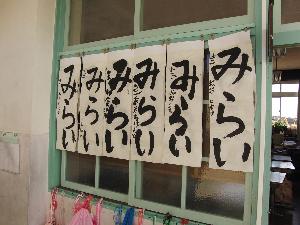 みらい
みらい
みらい
みらい
みらい
みらい